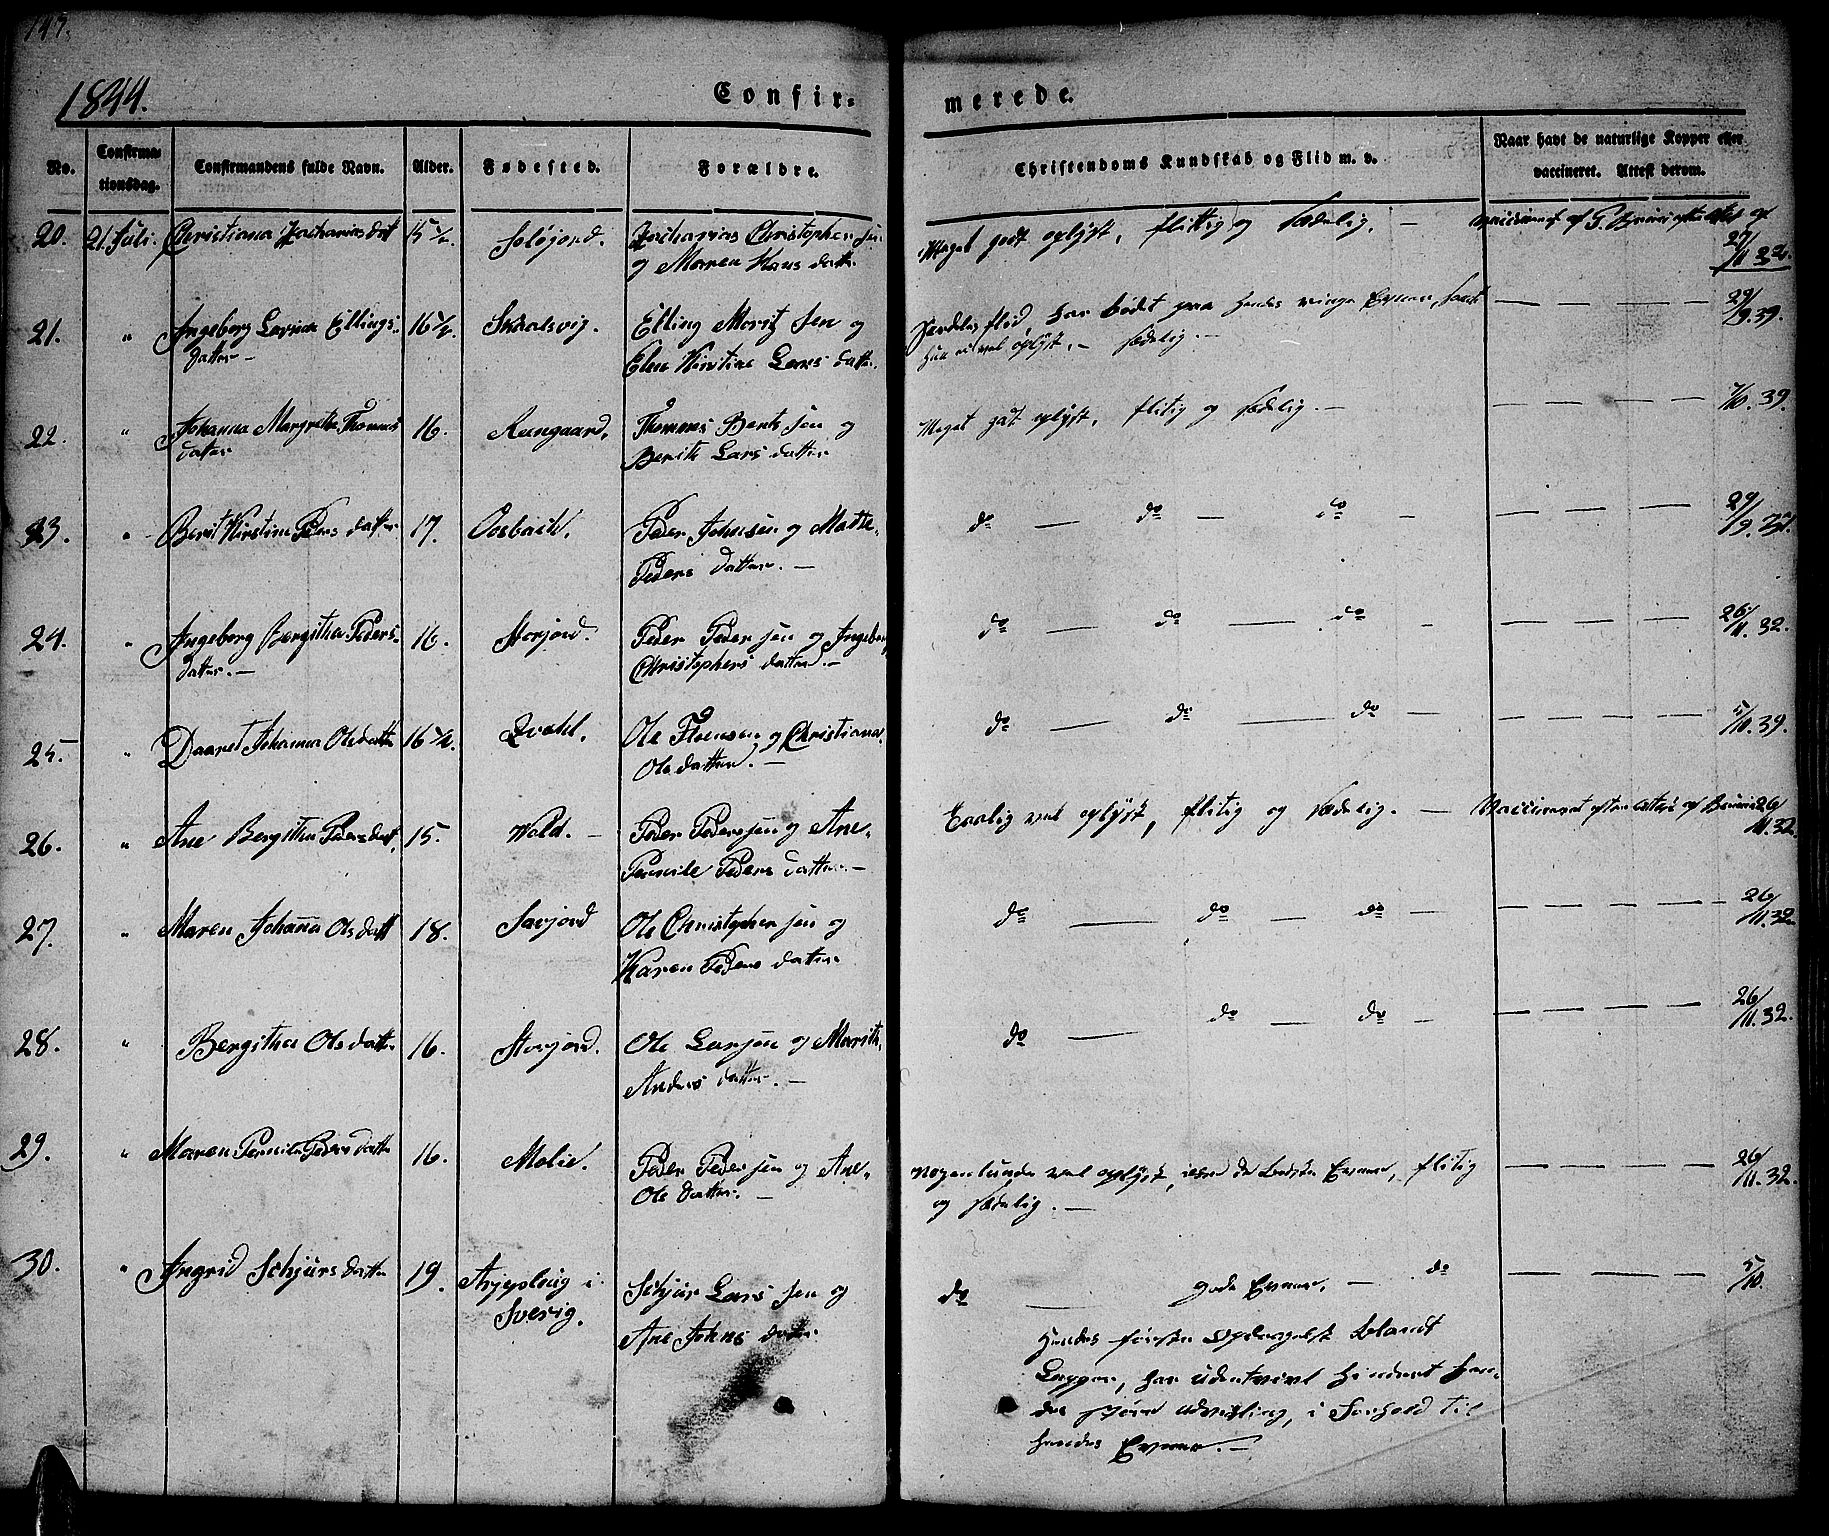 147.
1844.
Confir=
merede.
No.
Confirma=
tionsdag.
Confirmandens fulde Navn.
Alder.
Fødested.
Forældre.
Christendoms Kundskab og Flid m. v.
Naar havt de naturlige Kopper eller
vaccineret. Attest derom.
20. 21 Juli Christiana Zachariasdatt 15 1/2. Soløjord. Zacharias Christophersen
og Maren Hans datter
Meget godt oplyst, flittig og sædelig. —
Vaccineret af
27/11 32.
21. " Ingeborg Lovise Ellings=
datter —
16 1/2. Skaalsvig. Elling Moritz sen og
Elen Kirstine Lars datter.
Hendes flid har bødet paa hendes ringe Evner, samt
hun er vel oplyst, — sædelig. —
— — — — 29/9. 39.
22. " Johanna Margrethe Thomas
datter
16. Thomas Bentsen og
Berith Lars datter
Meget godt oplyst, flitig og sædelig. —
— — — — 7/10. 39.
23. " Berit Kirstine Peders datter 17. Osbakk. Peder Johnsen og Marthe
Peders datter. —
do — do — do —
— — — — 29/9.
24. " Ingeborg Bergitha Peders=
datter. —
16. Storjord. Peder Peder sen og Ingebor
Christophers datter. —
do — do — do —
— — — — 26/11. 32.
25. " Daaret Johanna Olsdatter 16 1/2. Qvahl. Ole og Christiana
Ols datter. —
do — do — do —
— — — — 5/10. 39.
26. " Ane Bergitha Pedersdatt, 15. Vold. — Peder Pedersen og Ane
Pernile Peders datter. —
Taalig vel oplyst, flitig og sædelig. —
Vaccineret efter Attest af 26/11. 32.
27. " Maren Johana Olsdatt 18. Sørjord Ole Christophersen og
Karen Peders datter
do — do — do —
— — — — 26/11. 32
28. " Bergitha Olsdatter 16. Storjord. Ole Larsen og Marith
Anders datter. —
do — do — do —
— — — — 26/11. 32.
29. " Maren Pernila Peders datter 16. Molie. Peder Pedersen og Ane
Ols datter. —
nogenlunde vel oplyst, uden de bedste Evner, flitig
og sædelig. —
— — — — 26/11. 32.
30. " Ingrid Schjurs datter 19. Arjeploug i
Sverig.
Schjur Lars sen og
Ane Johns datter
do — gode Evner, — do
— — — — 5/10.
Hendes første Opdragelse blandt
Lapper, har udentvivl hindret hen=
des større udvikling, i Forhold til
hendes Evner. —